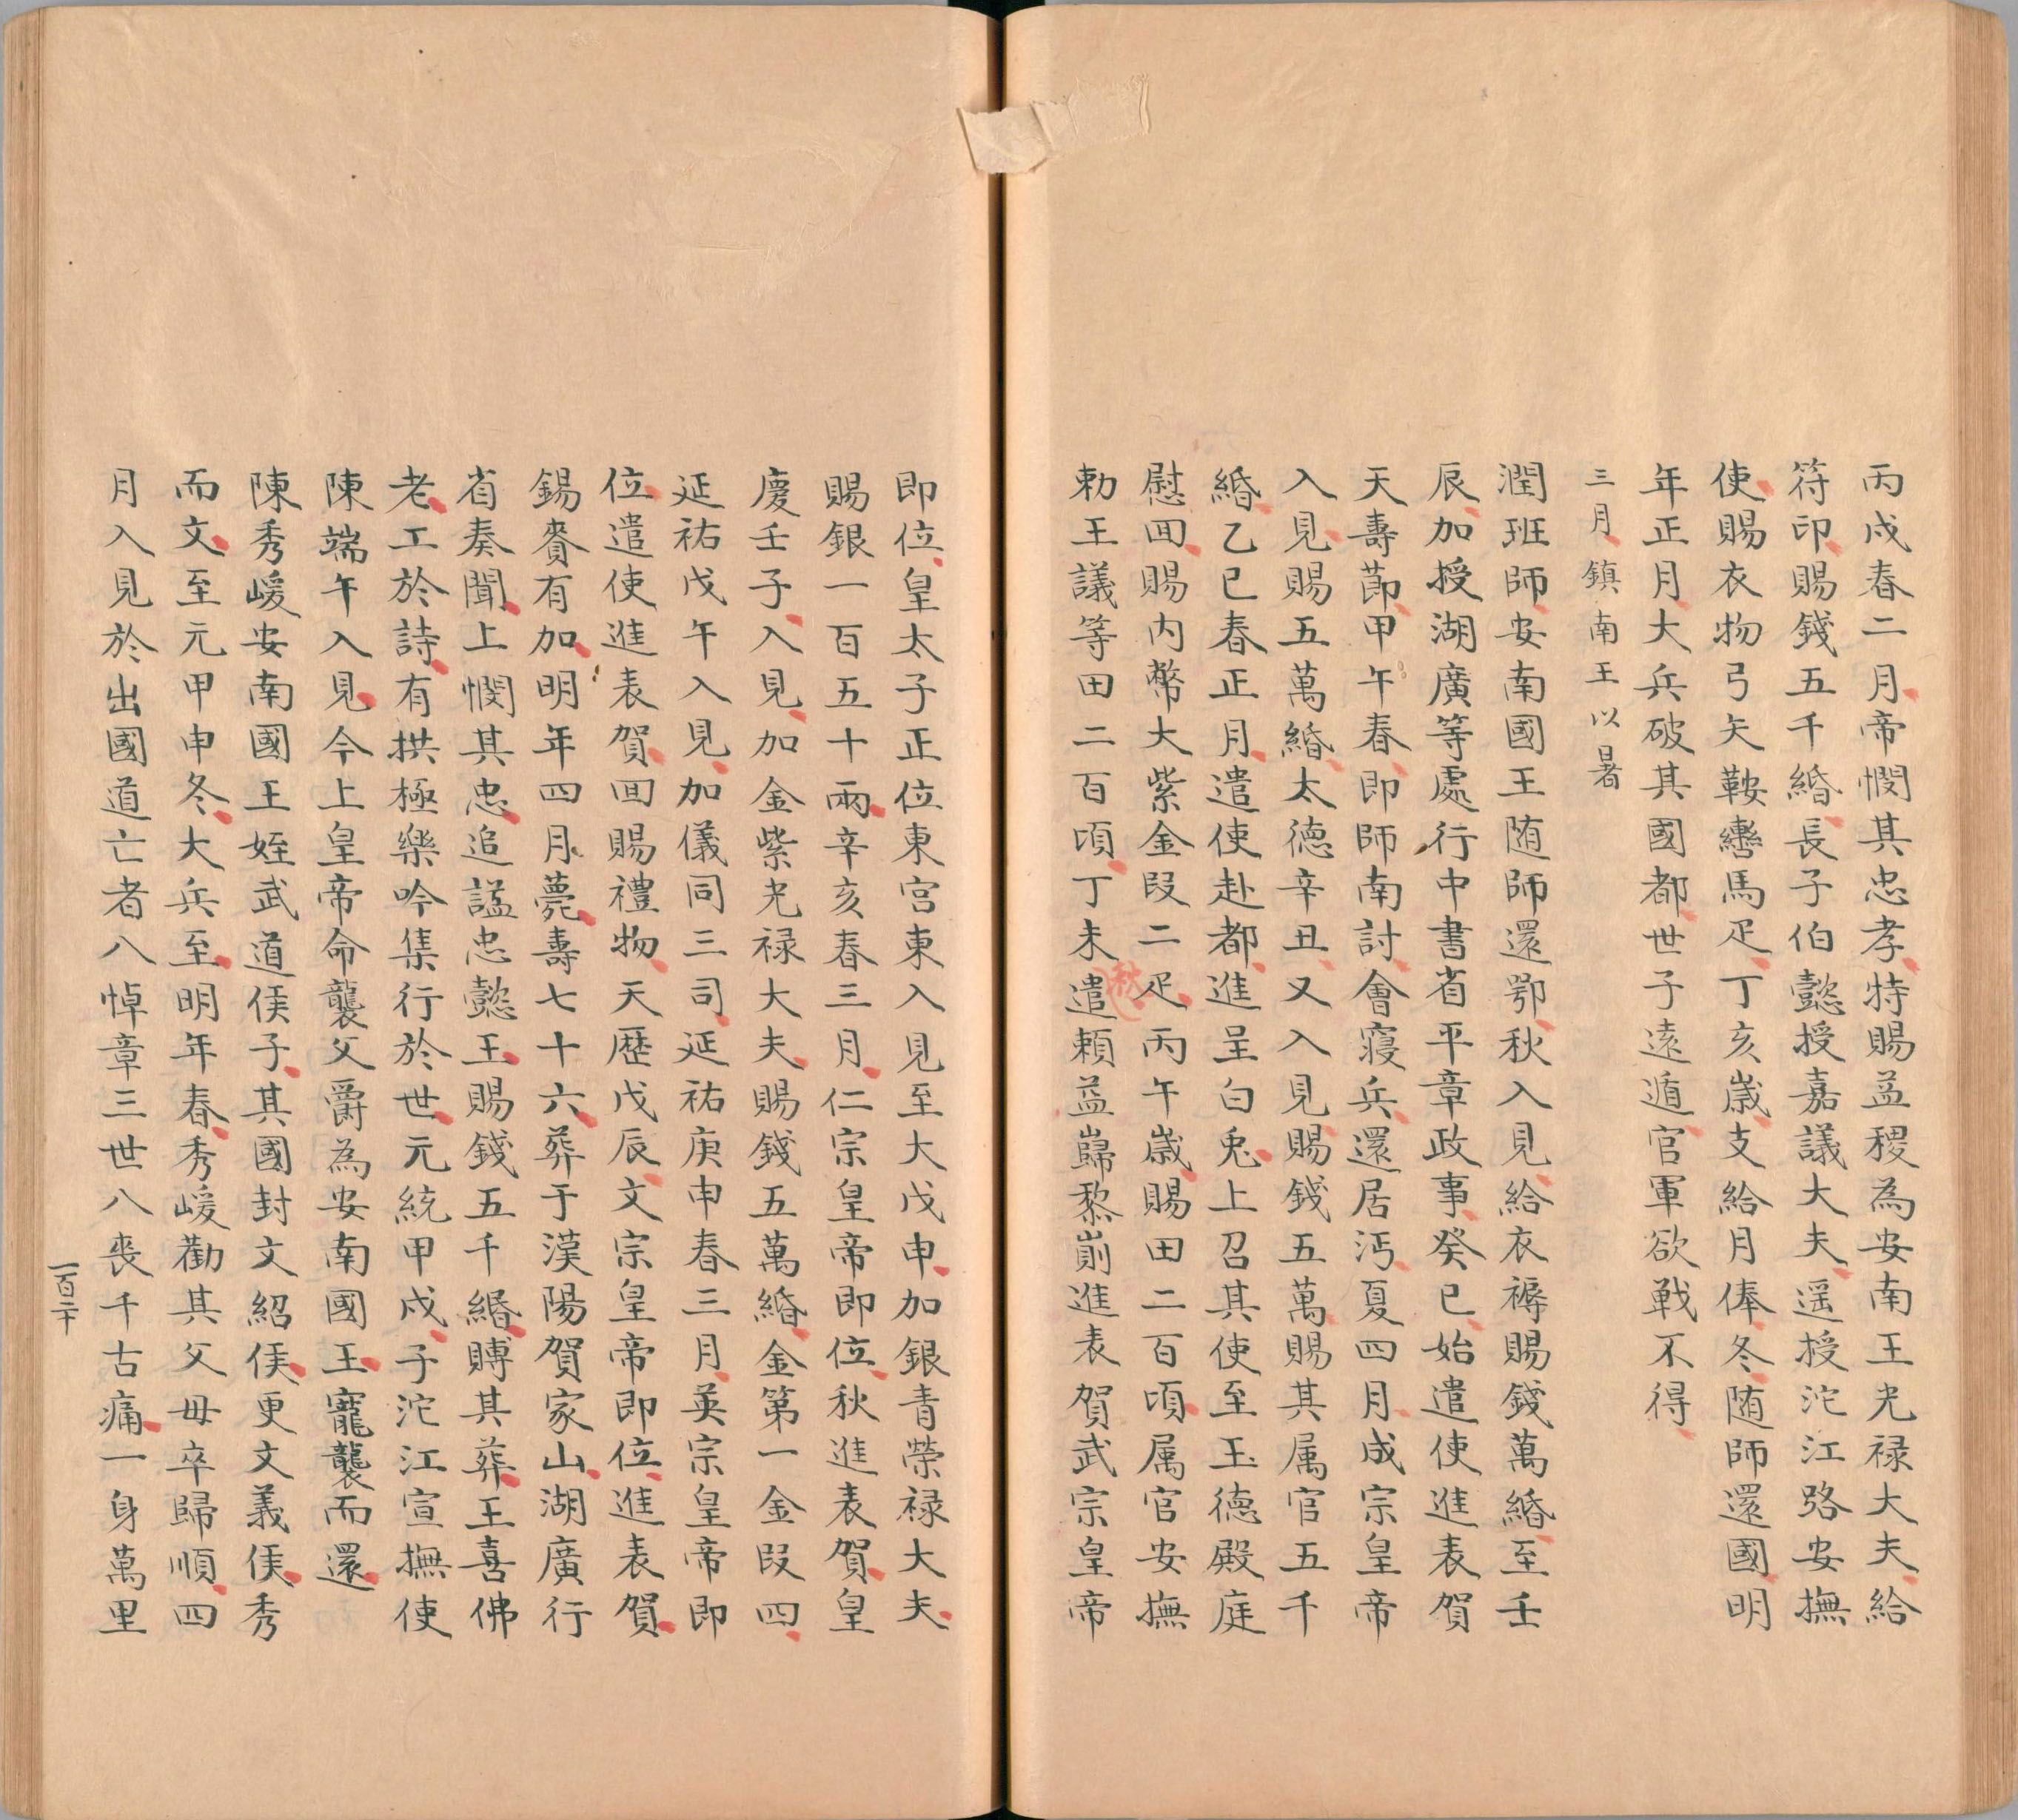 丙戍春二月帝憫其忠孝特賜益稷為安南王光禄大夫給
符印賜錢五千緡長子伯懿授嘉議大夫遥授沱江路安撫
使賜衣物弓矢鞍轡馬疋丁亥歲支給月俸冬随師還國明
年正月大兵破其國都世子逺遁官軍欲戰不得
三月鎮南王以暑
潤班師安南國王随師還鄂秋入見給衣褥賜錢萬緡至壬
辰加授湖廣等處行中書省平章政事癸巳始遣使進表賀
天壽莭甲午春即師南討會寢兵還居沔夏四月成宗皇帝
入見賜五萬緡太德辛丑又入見賜錢五萬賜其属官五千
緡乙巳春正月遣使赴都進呈白兎上召其使至玉德殿庭
慰囬賜内幣大紫金段二疋丙午歲賜田二百頃属官安撫
勅王議等田二百頃丁未秋遣賴益巋黎崱進表賀武宗皇帝
即位皇太子正位東宫東入見至大戊申加銀青榮禄大夫
賜銀一百五十兩辛亥春三月仁宗皇帝即位秋進表賀皇
慶壬子入見加金紫光禄大夫賜錢五萬緡金第一金段四
延祐戊午入見加儀同三司延祐庚申春三月英宗皇帝即
位遣使進表賀囬賜禮物天歷戊辰文宗皇帝即位進表賀
錫賚有加明年四月薨壽七十六葬于漢陽賀家山湖廣行
省奏聞上憫其忠追謚忠懿王賜錢五千緡賻其葬王喜佛
老工於詩有拱極樂吟集行於世元統甲戍子沱江宣撫使
陳端午入見今上皇帝命襲父爵為安南國王寵襲而還
陳秀嵈安南國王姪武道侯子其國封文紹侯更文義侯秀
而文至元甲申冬大兵至明年春秀嵈勸其父毋卒歸順四
月入見於出國道亡者八悼章三世八喪千古痛一身萬里
一百二十